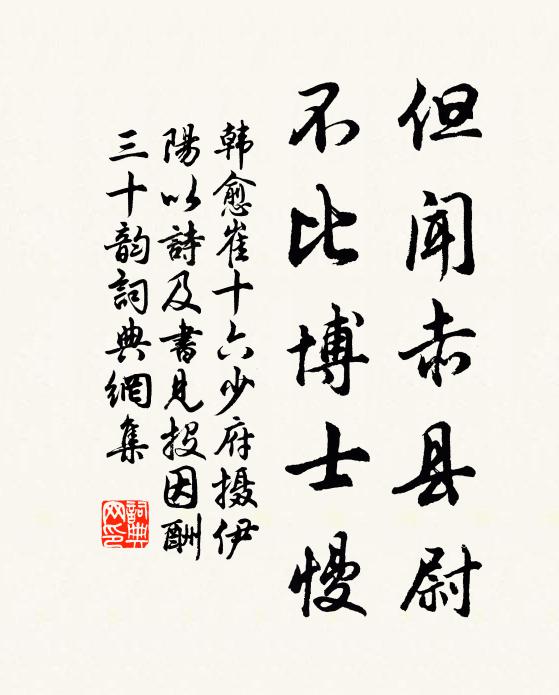 但闻赤县尉
不比博士慢
韩愈崔十六少府摄伊
陽以詩及書見投因酬
三十韵詞典網集
詞典
网印